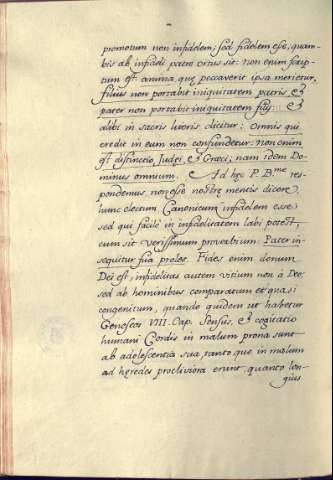 promotum non infidelem; sed fidelem esse, quam-
bis ab infideli patre ortus sit: non enim scrip-
tum est. anima, quę peccaverit ipsa morietur,
filius non portabit iniquitatem patris, &
pater non portabit iniquitatem filij: &
alibi in sacris litteris dicitur: Omnis qui
credit in eum non confundetur: non enim
est distinctio Judęi, & Gręci; nam idem Do-
minus omnium. Ad hęc P. B.me res-
pondemus non esse nostrę mentis dicere
hunc electum Canonicum infidelem esse:
sed qui facilè in infidelitatem labi potest,
cum sit verissimum proverbium: Pater in-
sequitur sua proles. Fides enim donum
Dei est, infidelitas autem vitium non a Deo,
sed ab hominibus comparatum et quasi
congenitum, quando quidem ut habetur
Geneseos VIII. Cap. Sensus, & cogitatio
humani Cordis in malum prona sunt
ab adolescentia sua, tanto que in malum
ad hęredes procliviora erunt, quanto lon-
gius